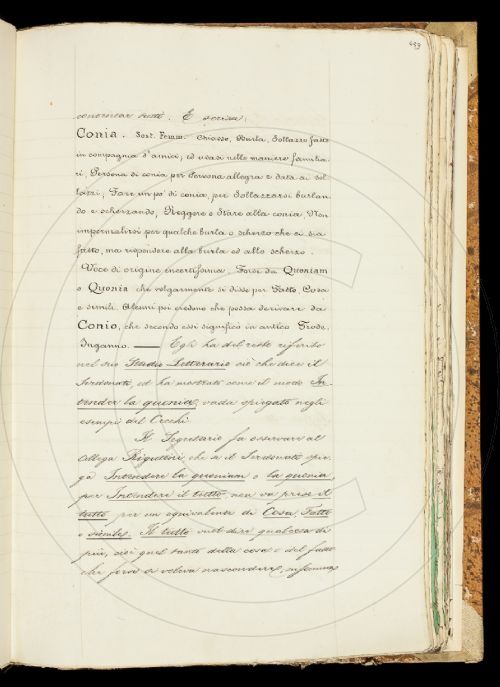 453
convincer tutti. E scrisse:
Conia. Sost. Femm. Chiasso, Burla, Sollazzo fatto
in compagnia d'amici, ed usasi nelle maniere familia-
ri, Persona di conia per Persona allegra e data ai sol-
lazzi, Fare un po' di conia, per Sollazzarsi burlan-
do e scherzando, Reggere o Stare alla conia, Non
impermalirsi per qualche burla o scherzo che ci sia
fatto, ma rispondere alla burla ed allo scherzo.
Voce di origine incertissima. Forse da Quoniam
o Quonia che volgarmente si disse per Fatto, Cosa
e simili. Alcuni poi credono che possa derivare da
Conio, che secondo essi significò in antico Frode,
Inganno. — Egli ha del resto riferito
nel suo Studio Letterario ciò che dice il
Serdonati, ed ha mostrato come il modo In-
tender la quonia, vada spiegato negli
esempi del Cecchi.
Il Segretario fa osservare al
Collega Rigutini, che se il Serdonati spie-
ga Intendere la quoniam o la quonia,
per Intendere il tutto, non va preso il
tutto per un equivalente di Cosa, Fatto
o simile. Il tutto vuol dire qualcosa di
più, cioè quel tanto della cosa o del fatto
che forse si voleva nascondere,